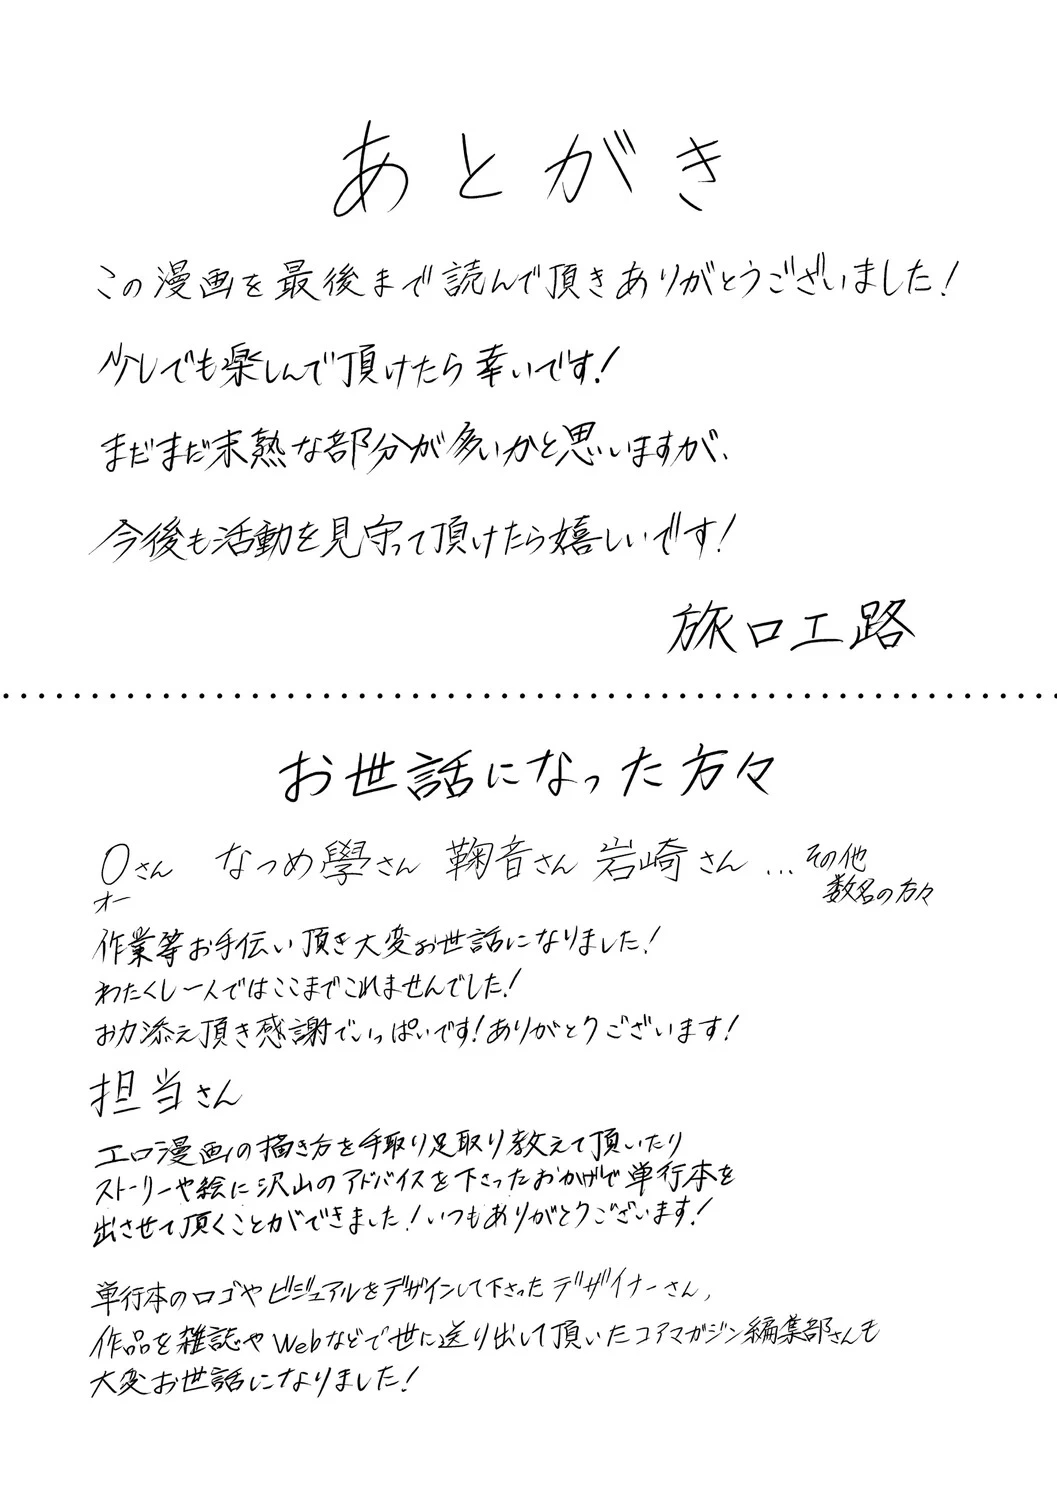 あとがき
この漫画を最後まで読んで頂きありがとうございました!
少しでも楽しんで頂けたら幸いです!
まだまだ未熟な部分が多いかと思いますが、
今後も活動を見守って頂けたら嬉しいです!
旅口工路
お世話になった方々
Oさん なつめ學さん 鞠音さん 岩崎さん …その他
オー 数名の方々
作業等お手伝い頂き大変お世話になりました!
わたくし一人ではここまでこれませんでした!
お力添え頂き感謝でいっぱいです!ありがとうございます!
担当さん
エロ漫画の描き方を手取り足取り教えて頂いたり
ストーリーや絵に沢山のアドバイスを下さったおかげで単行本を
出させて頂くことができました!いつもありがとうございます!
単行本のロゴやビジュアルをデザインして下さったデザイナーさん,
作品を雑誌やWebなどで世に送り出して頂いたコアマガジン編集部さんも
大変お世話になりました!